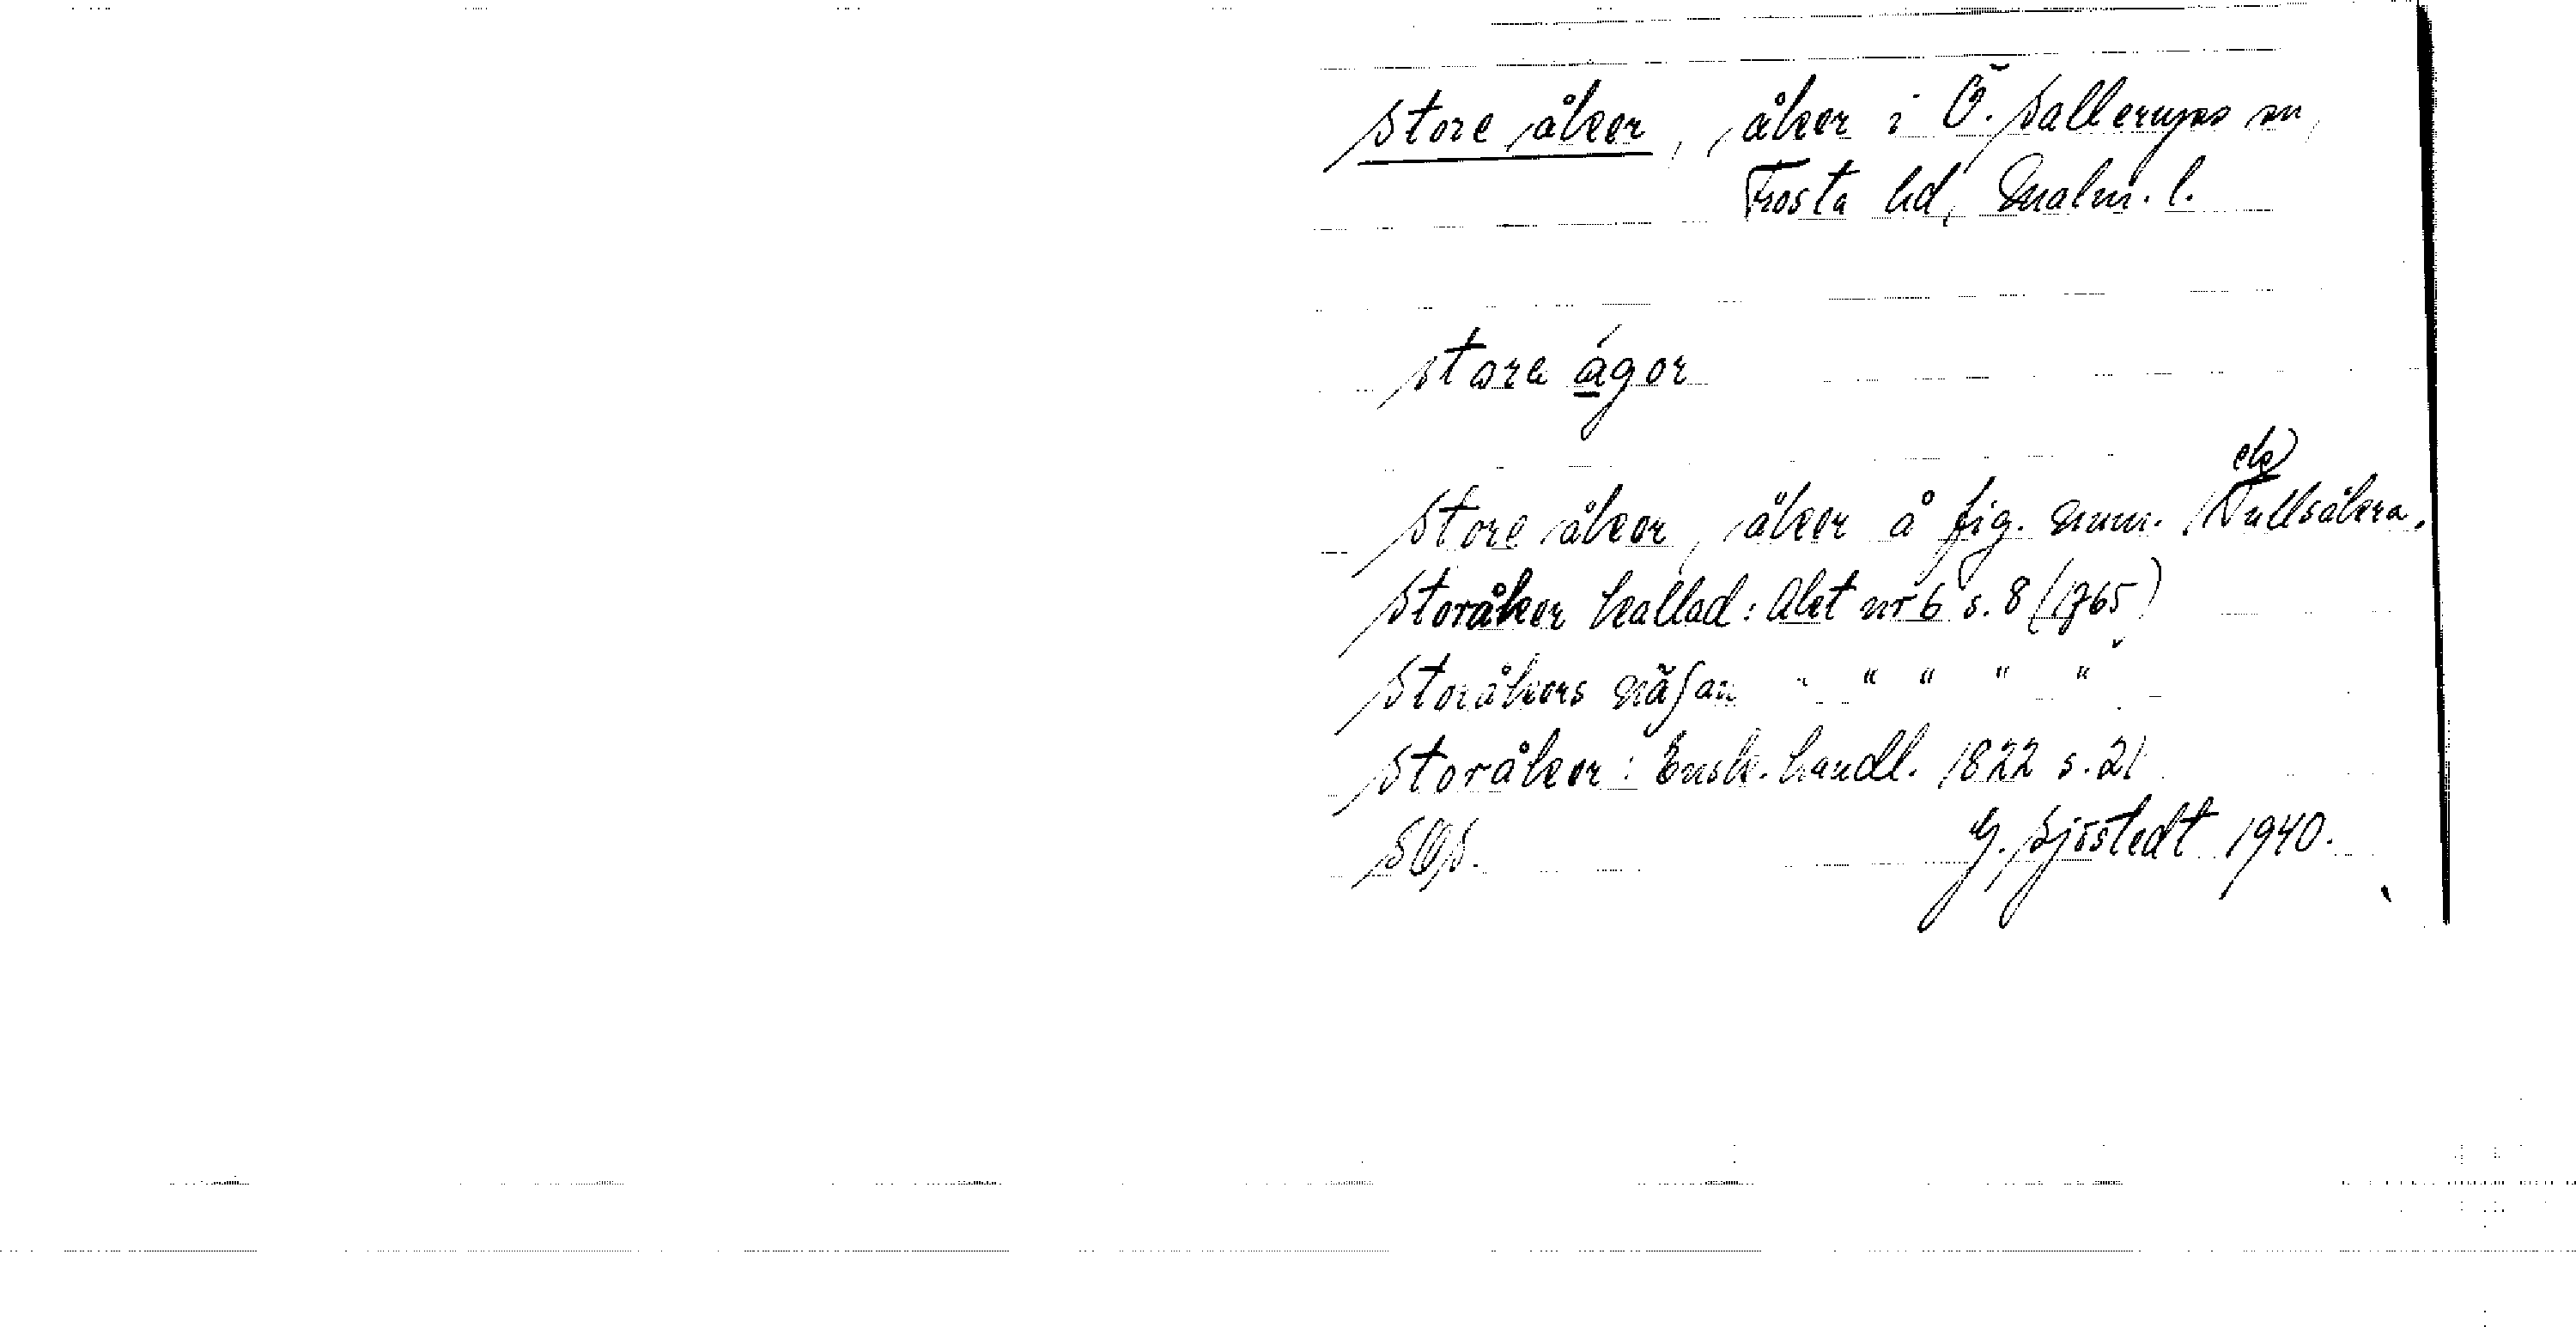 Store åker, åker i Ö. Sallerups sn,
Frosta hd, Malm. l.
stora ágor
Store åker, åker å fig. num.
Storåker kallad: Akt nr 6 s. 8 (1765)
Storåkers näsan " " " " "
Storåker: Ensk. handl. 1822 s. 21
SOS. G. Sjöstedt 1940.